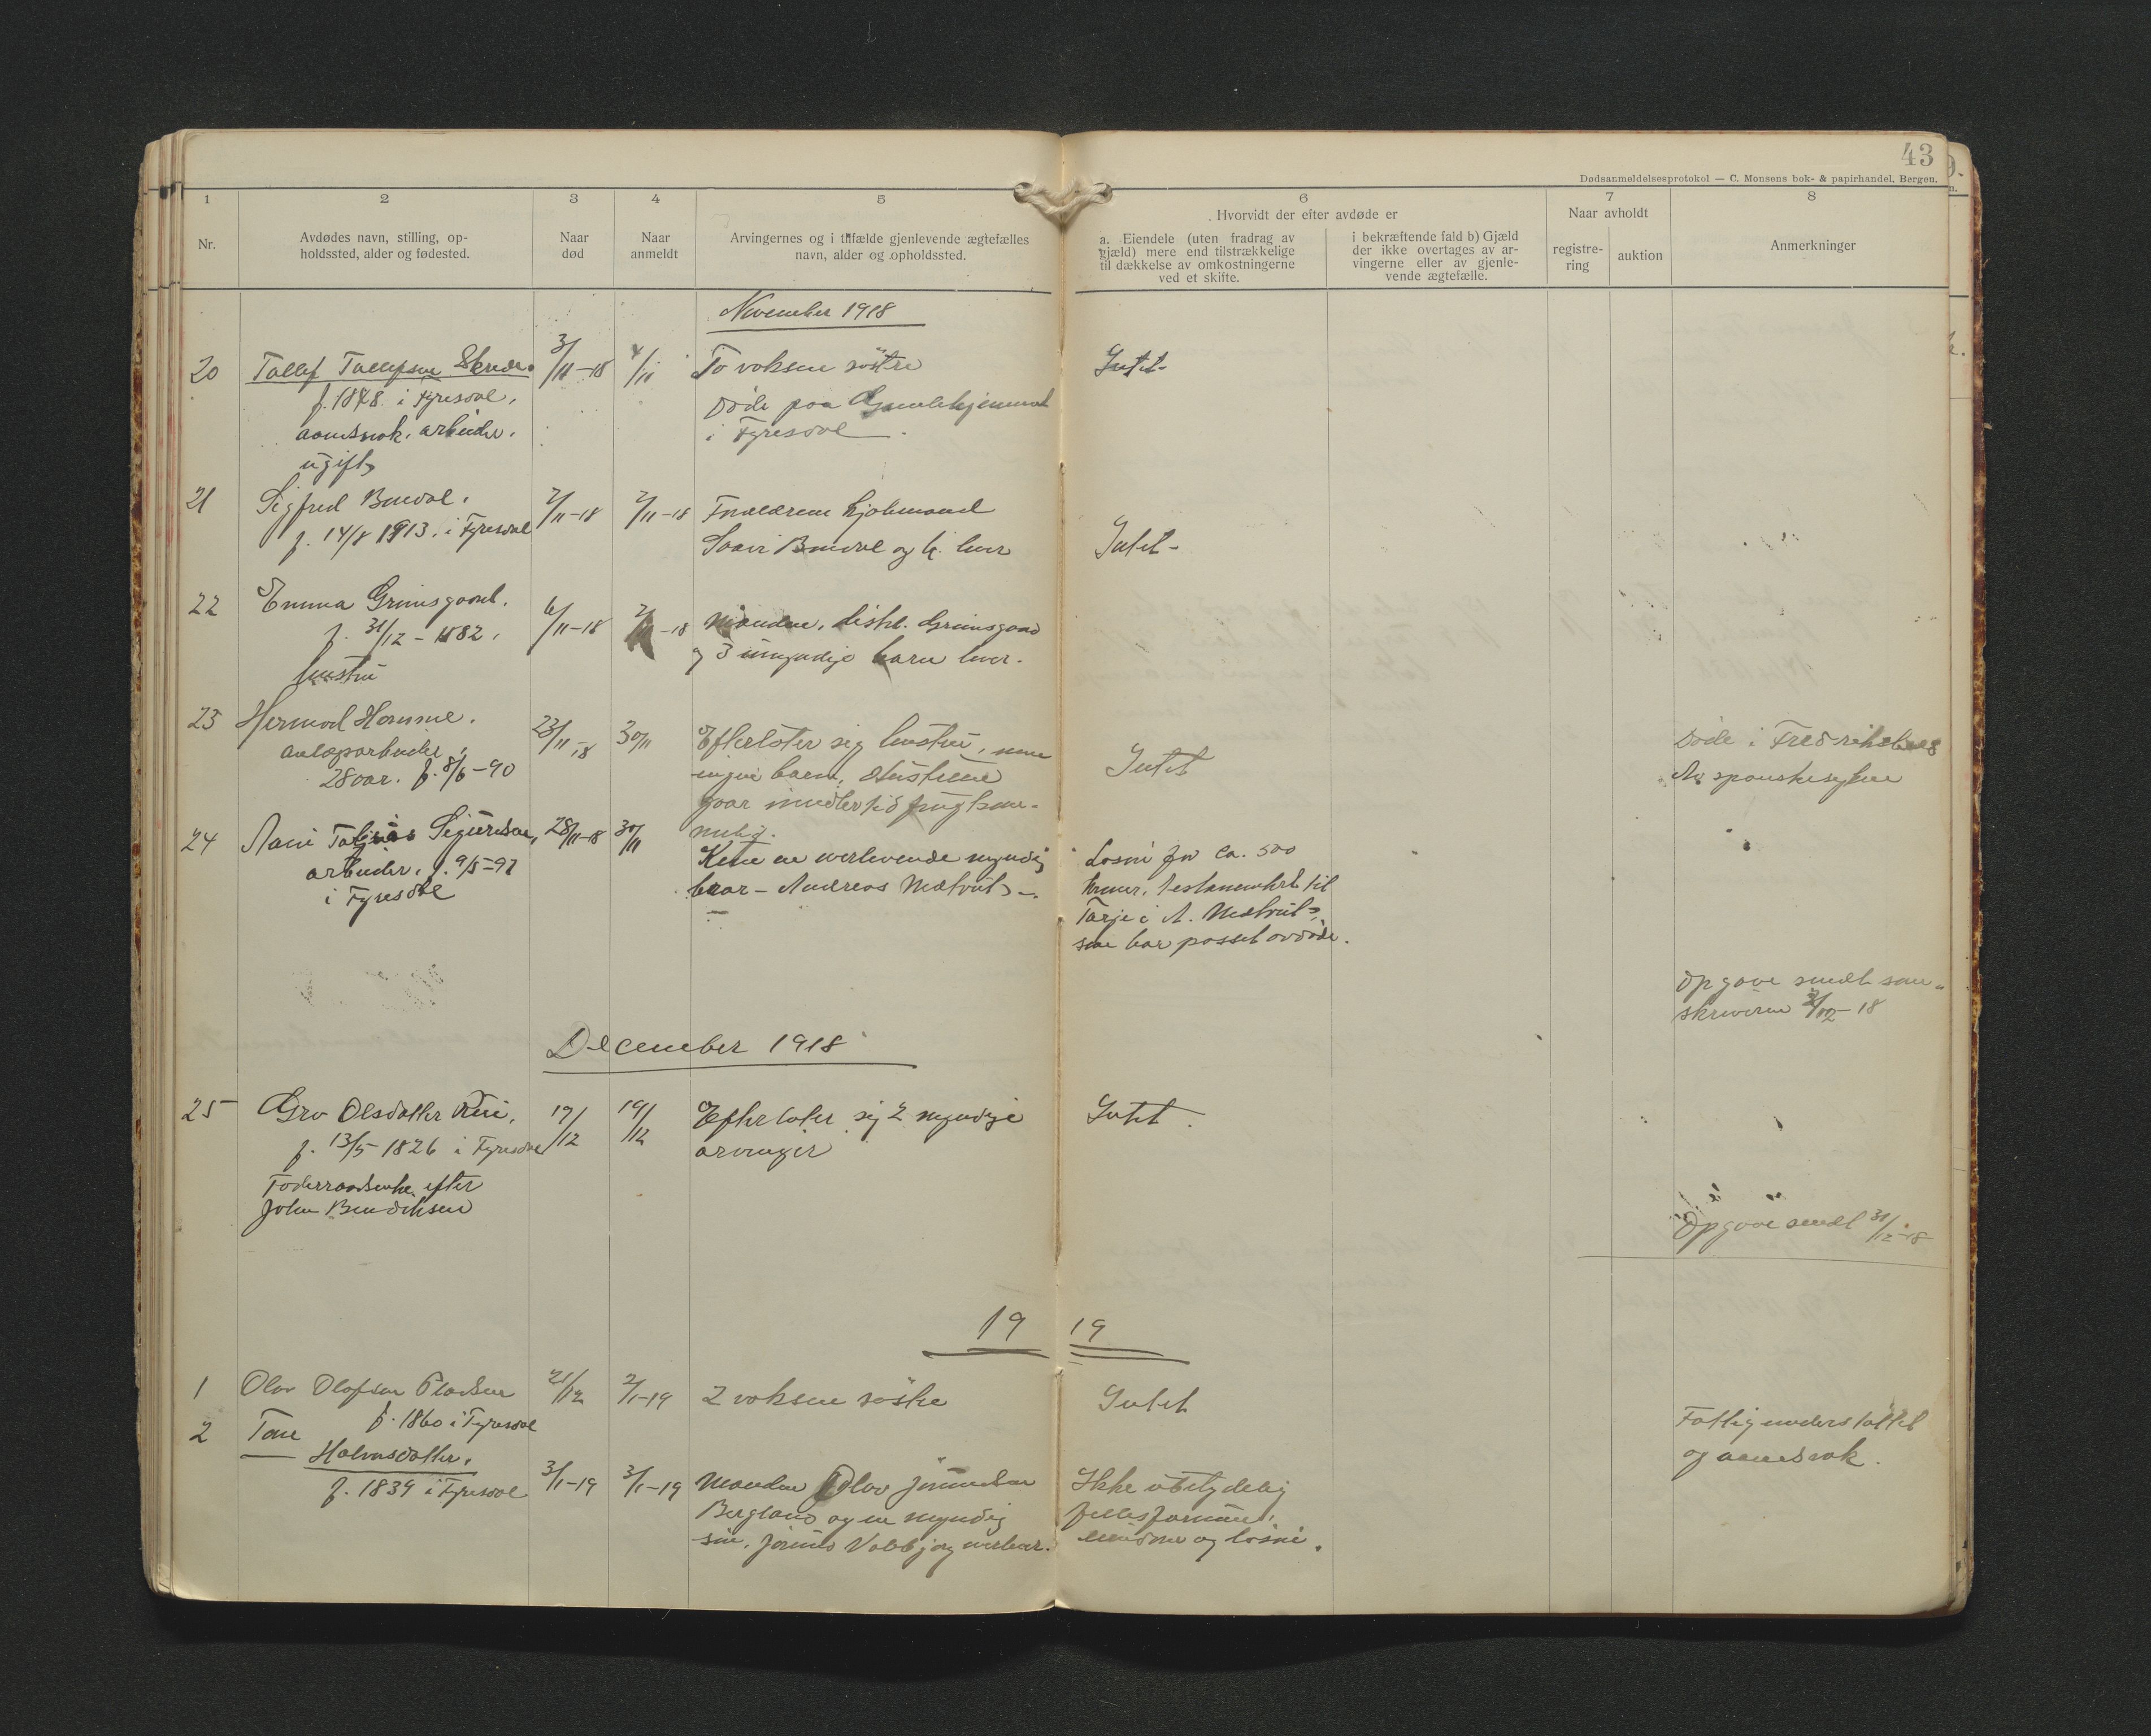 43
Dødsanmeldelsesprotokol — C. Monsens bok- & papirhandel, Bergen.
1 2 3 4 5 6 7 8
Nr.
Avdødes navn, stilling, op-
holdssted, alder og fødested.
Naar
død
Naar
anmeldt
Arvingernes og i tilfælde gjenlevende ægtefælles
navn, alder og opholdssted.
Hvorvidt der efter avdøde er
a. Eiendele (uten fradrag av
gjæld) mere end tilstrækkelige
til dækkelse av omkostningerne
ved et skifte.
i bekræftende fald b) Gjæld
der ikke overtages av ar-
vingerne eller av gjenle-
vende ægtefælle.
Naar avholdt
registre-
ring
auktion
Anmerkninger
November 1918
20 Tallef Tallefsen 3/11-18 4/11 To voksne söstre Intet-
f. 1848 i Fyresdal,
aandsvak. arbeider.
ugift
Döde paa Gamlehjemmet
i Fyresdal.
21 Sigfred 7/11-18 7/11-18
f. 14/8 1913. i Fyresdal
og h. lever Intet-
22 Emma Grimsgaard. 6/11-18 7/11-18 Manden, Grimsgaard
f. 31/12-1882,
hustru
og 3 umyndige barn lever.
23 Hermod Homme. 23/11-18 30/11 Efterlater sig hustru, men
anlægsarbeider,
28 aar. f. 8/6-90
ingen barn. Hustruen
gaar imidlertid frugtsom-
melig.
Intet
Döde i Fredrikshald
Av spanskesyken
24 Aani Sigurdsen, 28/11-18 30/11
arbeider, f. 9/5-97
i Fyresdal
Kun en overlevende myndig
bror - Andreas
Lösöre for ca. 500
kroner, testamentert til
Tarjei A.
som har passet avdöde.
Opgave sendt sorn-
skriveren 2/12-18
December 1918
25 Gro Olsdatter 17/12 19/12 Efterlater sig 2 myndige Intet.
f. 13/5 1826 i Fyresdal
arvinger
Föderaadsenke efter
John Bendiksen
Opgave sendt 31/12-18
19 19
1 Olav Olafsen 21/12 2/1-19 2 voksne söstre Intet
f. 1860 i Fyresdal
Fattigunderstöttet
og aandsvak.
2 Tone
Halvorsdatter.
f. 1839 i Fyresdal 3/1-19 3/1-19
Manden Olav Jörundsen
Bergland og en myndig
sön, Jörund overlever.
Ikke ubetydelig
fællesformue,
eiendom og lösöre.